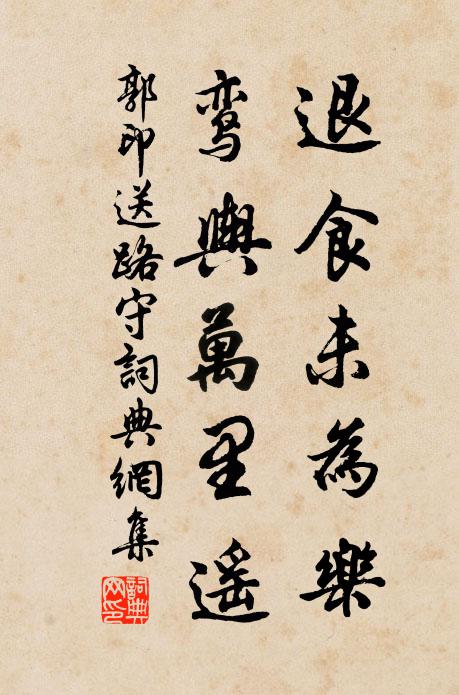 退食未為樂
鸾輿萬里遥
郭印送路守詞典網集
詞典网印